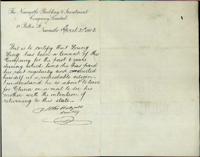 The Newcastle Building & Investment
Company Limited
Newcastle April 21st 190
This is to certify that Young
Hing has been a tenant of this
Company for the past 6 years
during which time he has paid
his rent regularly and conducted
himself in a respectable manner
we understand he is about to leave
for China on a visit to see his
mother with the intention of
returning to this state.